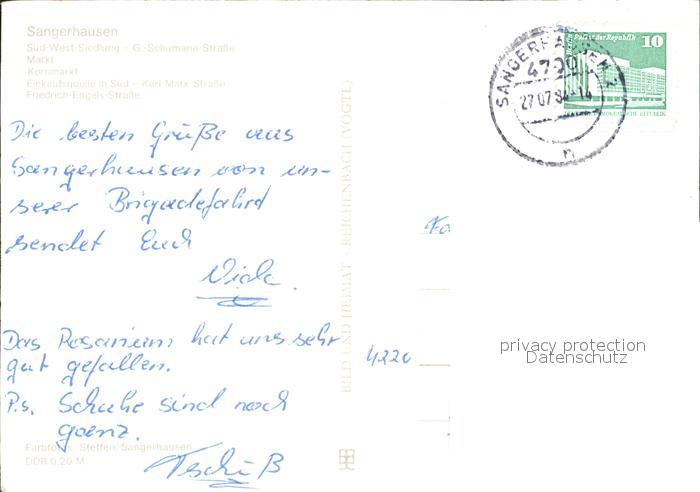 Sangerhausen
Süd-West-Siedlung – G.-Schumann-Straße
Markt
Kornmarkt
Einkaufsquelle in Süd – Karl-Marx-Straße
Friedrich-Engels-Straße
Die besten Grüße aus
Sangerhausen von un-
serer Brigadefahrt
sendet Euch
Das Rosarium hat uns sehr
gut gefallen.
P.s. Schuhe sind noch
ganz.
Tschüß
Farbfotos: Steffen, Sangerhausen
DDR 0,20 M
BILD UND HEIMAT · REICHENBACH (VOGTL)
SANGERHAUSEN 1
4700
27.07.84-14
n
Berlin Palast der Republik
10
DEMOKRATISCHE REPUBLIK
4220
privacy protection
Datenschutz